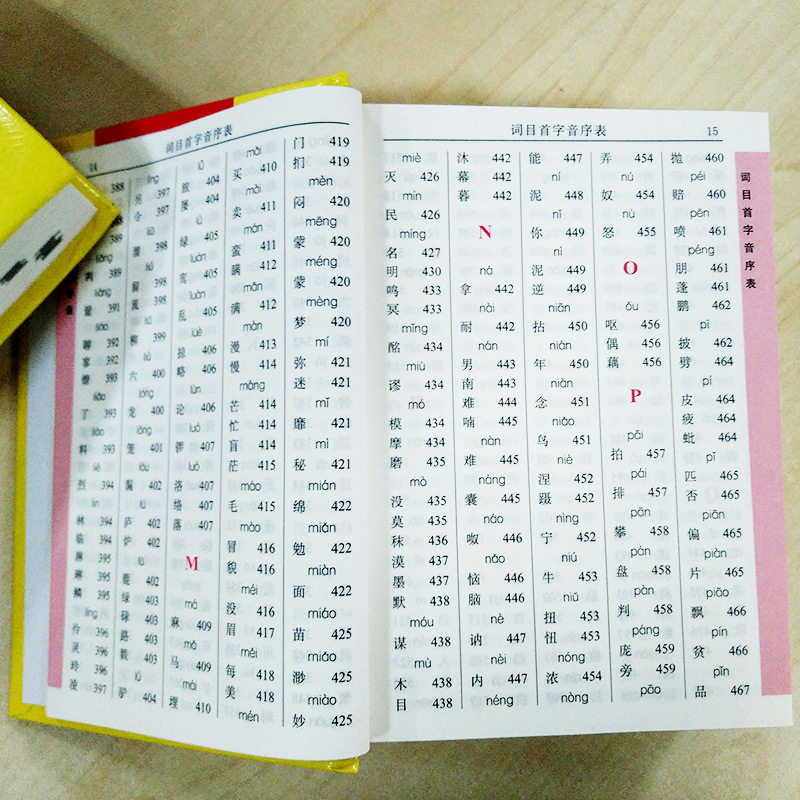 14 词目首字音序表
388
389
两
liàng
量 391
liáo
聊 392
liǎo
了 393
liào
料 393
liè
烈 394
lín
林 394
临 394
淋 395
鳞 395
líng
伶 396
灵 396
玲 396
凌 397
397
令 397
liū
溜 398
liú
留 398
流 398
liǔ
柳 399
liù
六 400
lóng
龙 400
笼 401
lòu
漏 402
lú
庐 402
炉 402
lù
鹿 402
绿 403
碌 403
路 403
戮 403
lǘ
驴 404
lǚ
404
屡 404
lǜ
绿 405
luán
鸾 405
luàn
乱 405
lüè
掠 406
略 406
lùn
论 406
luó
锣 407
luò
洛 407
络 407
落 407
M
má
麻 409
mǎ
马 409
mái
埋 410
mǎi
买 410
mài
卖 411
mán
蛮 411
瞒 412
mǎn
满 412
màn
漫 413
慢 414
máng
芒 414
忙 414
盲 414
茫 415
máo
毛 415
mào
冒 416
貌 416
méi
没 416
眉 417
měi
每 418
美 418
mén
门 419
扪 419
mèn
闷 420
mēng
蒙 420
méng
蒙 420
mèng
梦 420
mí
弥 421
迷 421
mǐ
靡 421
mì
秘 421
mián
绵 422
miǎn
勉 422
miàn
面 422
miáo
苗 425
miǎo
渺 425
miào
妙 425
词目首字音序表 15
miè
灭 426
mín
民 426
míng
名 427
明 430
鸣 433
冥 433
mǐng
酩 434
miù
谬 434
mó
模 434
摩 434
磨 435
mò
没 435
莫 435
秣 436
漠 437
墨 437
默 438
móu
谋 438
mù
木 438
目 438
沐 442
幕 442
暮 442
N
ná
拿 442
nài
耐 442
nán
男 443
南 443
难 444
喃 445
nàn
难 445
náng
囊 445
náo
呶 446
nǎo
恼 446
脑 446
nè
讷 447
nèi
内 447
néng
能 447
ní
泥 448
nǐ
你 449
nì
泥 449
逆 449
niān
拈 450
nián
年 450
niàn
念 451
niǎo
鸟 451
niè
涅 452
蹑 452
nìng
宁 452
niú
牛 453
niǔ
扭 453
忸 453
nóng
浓 454
nòng
弄 454
nú
奴 454
nù
怒 455
O
ǒu
呕 456
偶 456
藕 456
P
pāi
拍 457
pái
排 457
pān
攀 458
pán
盘 458
pàn
判 458
páng
庞 459
旁 459
pāo
抛 460
péi
赔 460
pēn
喷 461
péng
朋 461
蓬 461
鹏 462
pī
披 462
劈 464
pí
皮 464
疲 464
蚍 464
pǐ
匹 465
否 465
piān
偏 465
piàn
片 465
piāo
飘 466
pín
贫 466
pǐn
品 467
词目首字音序表